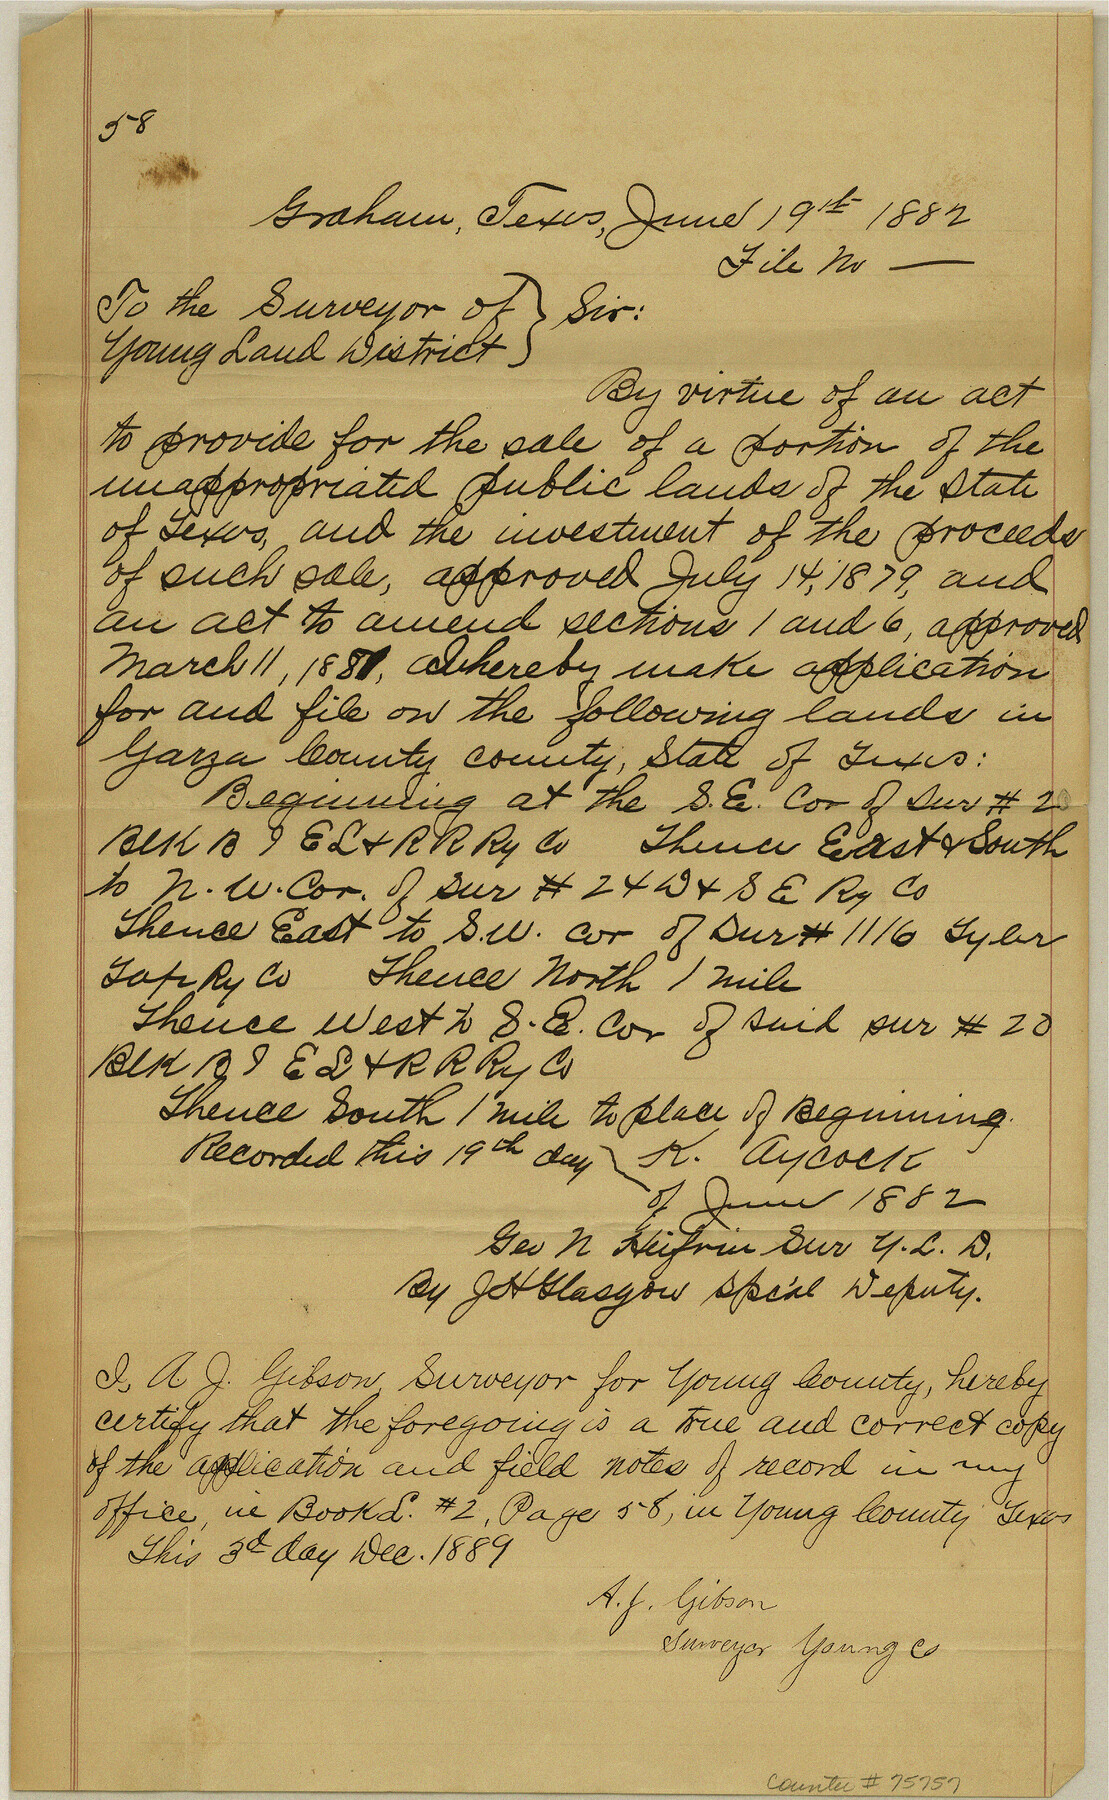 58
Graham, Texas, June 19th 1882
File No —
To the Surveyor of } Sir:
Young Land District
By virtue of an act
to provide for the sale of a portion of the
unappropriated public lands of the State
of Texas, and the investment of the proceeds
of such sale, approved July 14, 1879, and
an act to amend sections 1 and 6, approved
March 11, 1881, I hereby make application
for and file on the following lands in
Garza County county, State of Texas:
Beginning at the S.E. Cor of Sur # 20
Blk B 9 E L & R R Ry Co Thence East & South
to N. W. Cor. of Sur # 2 & D & S E Ry Co
Thence East to S.W. cor of Sur # 1116 Tyler
Tap Ry Co Thence North 1 mile
Thence West to S. E. Cor of said sur # 20
Blk B 9 E L & R R Ry Co
Thence South 1 mile to place of Beginning.
Recorded this 19th day K. Aycock
of June 1882
Geo N Sur Y. L. D.
By J H Glasgow Spc'al Deputy.
I, A. J. Gibson, Surveyor for Young County, hereby
certify that the foregoing is a true and correct copy
of the application and field notes of record in my
office, in Book L. #2, Page 58, in Young County Texas
This 3d day Dec. 1889
A. J. Gibson
Surveyor Young Co
Counter # 75757